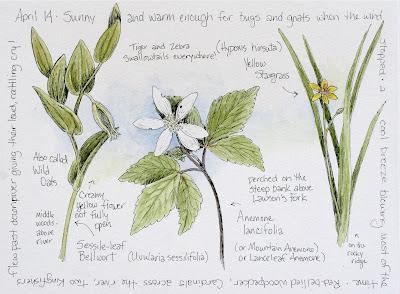 April 14. Sunny and warm enough for bugs and gnats when the wind
stopped. a cool breeze blowing most of the
time. Red bellied woodpecker, Cardinals across the river, Two Kingfishers
flew past downriver giving their loud, rattling cry!
Tiger and Zebra
swallowtails everywhere!
(Hypoxis hirsuta)
Yellow
Stargrass
Also called
Wild
Oats
Creamy
yellow flower
not fully
open
middle
woods
above
river
Sessile-leaf
Bellwort
(Uvularia sessilifolia)
perched on the
steep bank above
Lawson's fork
Anemone
lancifolia
(or Mountain Anemone)
(or Lanceleaf Anemone)
on the
rocky
ridge